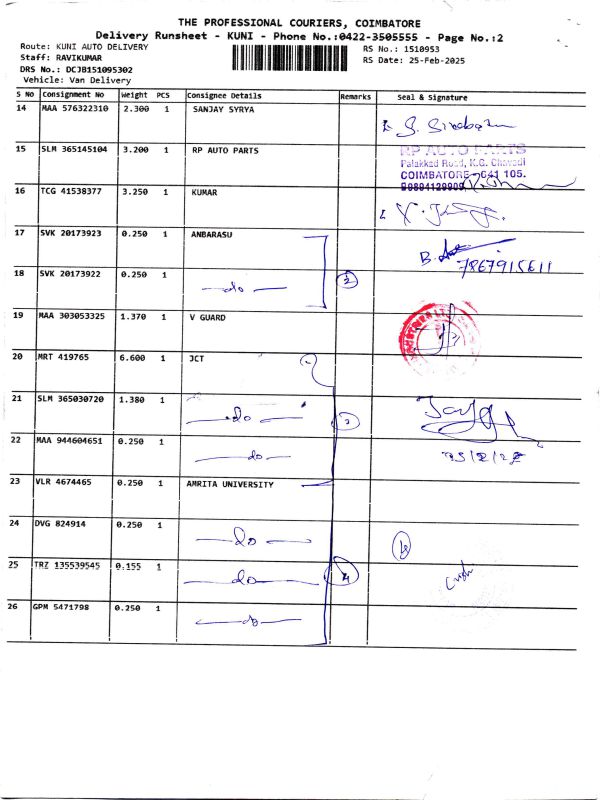 THE PROFESSIONAL COURIERS, COIMBATORE
Delivery Runsheet - KUNI - Phone No.:0422-3505555 - Page No.:2
Route: KUNI AUTO DELIVERY
RS No.: 1510953
Staff: RAVIKUMAR
RS Date: 25-Feb-2025
DRS No.: DCJB151095302
Vehicle: Van Delivery
S No Consignment No Weight PCS Consignee Details Remarks Seal & Signature
14 MAA 576322310 2.300 1 SANJAY SYRYA
15 SLM 365145104 3.200 1 RP AUTO PARTS
RP AUTO PARTS
Palakkad Road, K.G. Chavadi
COIMBATORE - 641 105.
16 TCG 41538377 3.250 1 KUMAR
17 SVK 20173923 0.250 1 ANBARASU
7867915611
18 SVK 20173922 0.250 1 do 2
19 MAA 303053325 1.370 1 V GUARD
20 MRT 419765 6.600 1 JCT
21 SLM 365030720 1.380 1 do 3
22 MAA 944604651 0.250 1 do
23 VLR 4674465 0.250 1 AMRITA UNIVERSITY
24 DVG 824914 0.250 1 do
25 TRZ 135539545 0.155 1 do 4
26 GPM 5471798 0.250 1 do